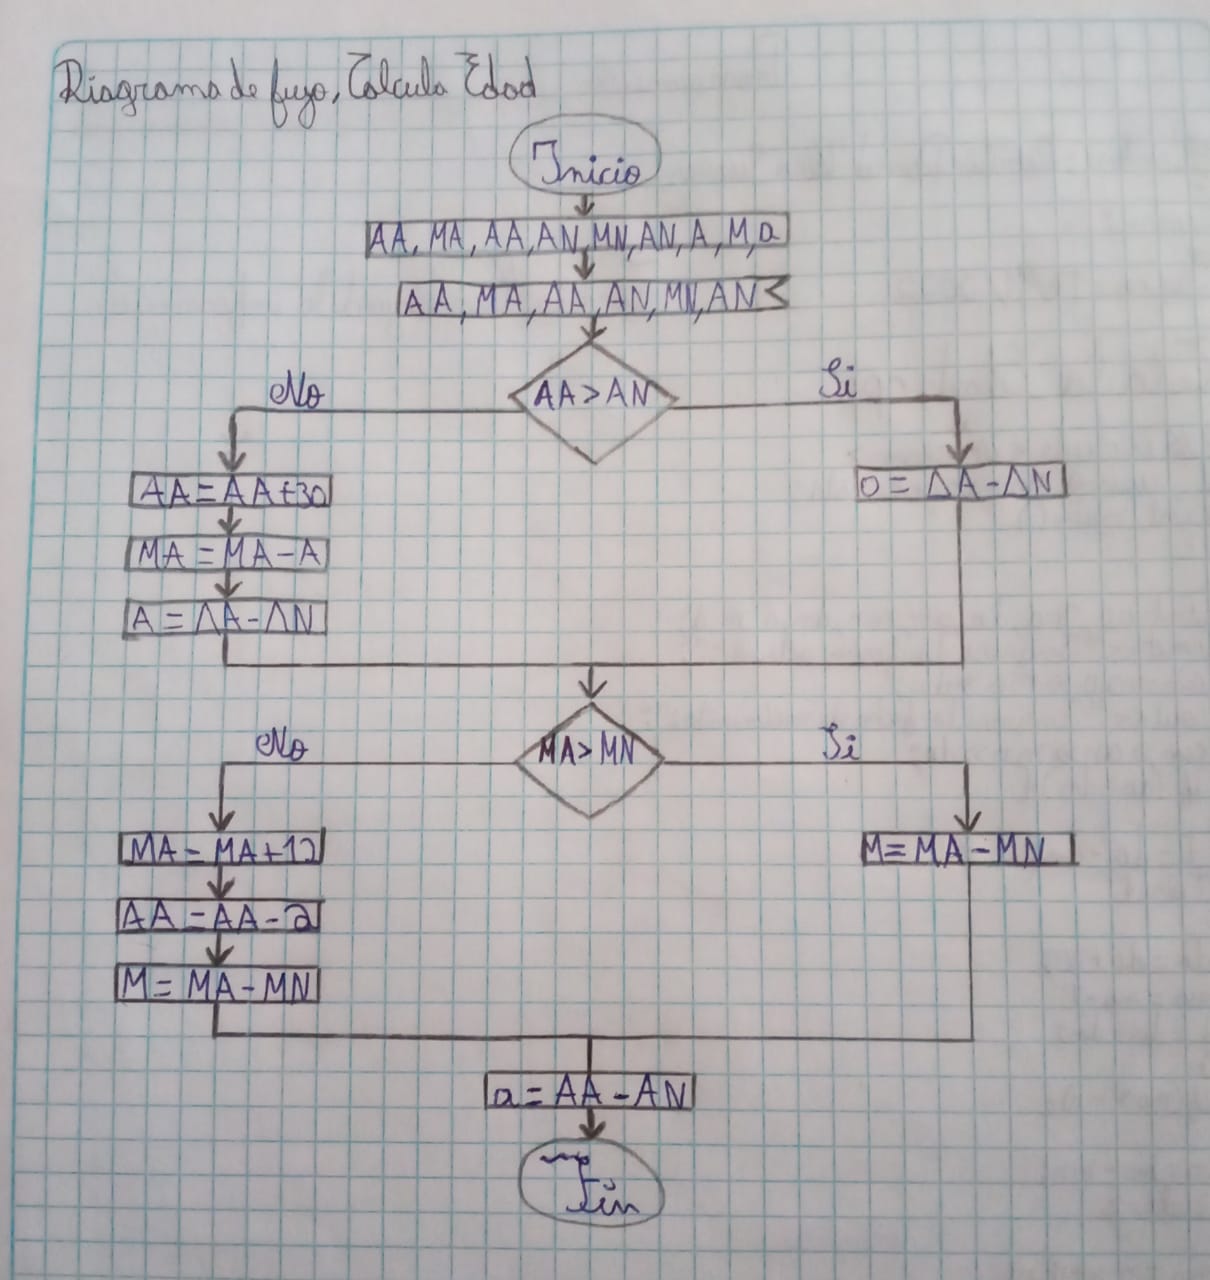 Diagrama de flujo, Calcula Edad
Inicio
AA, MA, AA, AN, MN, AN, A, M, a
AA, MA, AA, AN, MN, AN
No
AA > AN
Si
AA = AA + 30
MA = MA - A
A = ΔA - ΔN
0 = ΔA - ΔN
No
MA > MN
Si
MA = MA + 12
AA = AA - 2
M = MA - MN
M = MA - MN
a = AA - AN
Fin